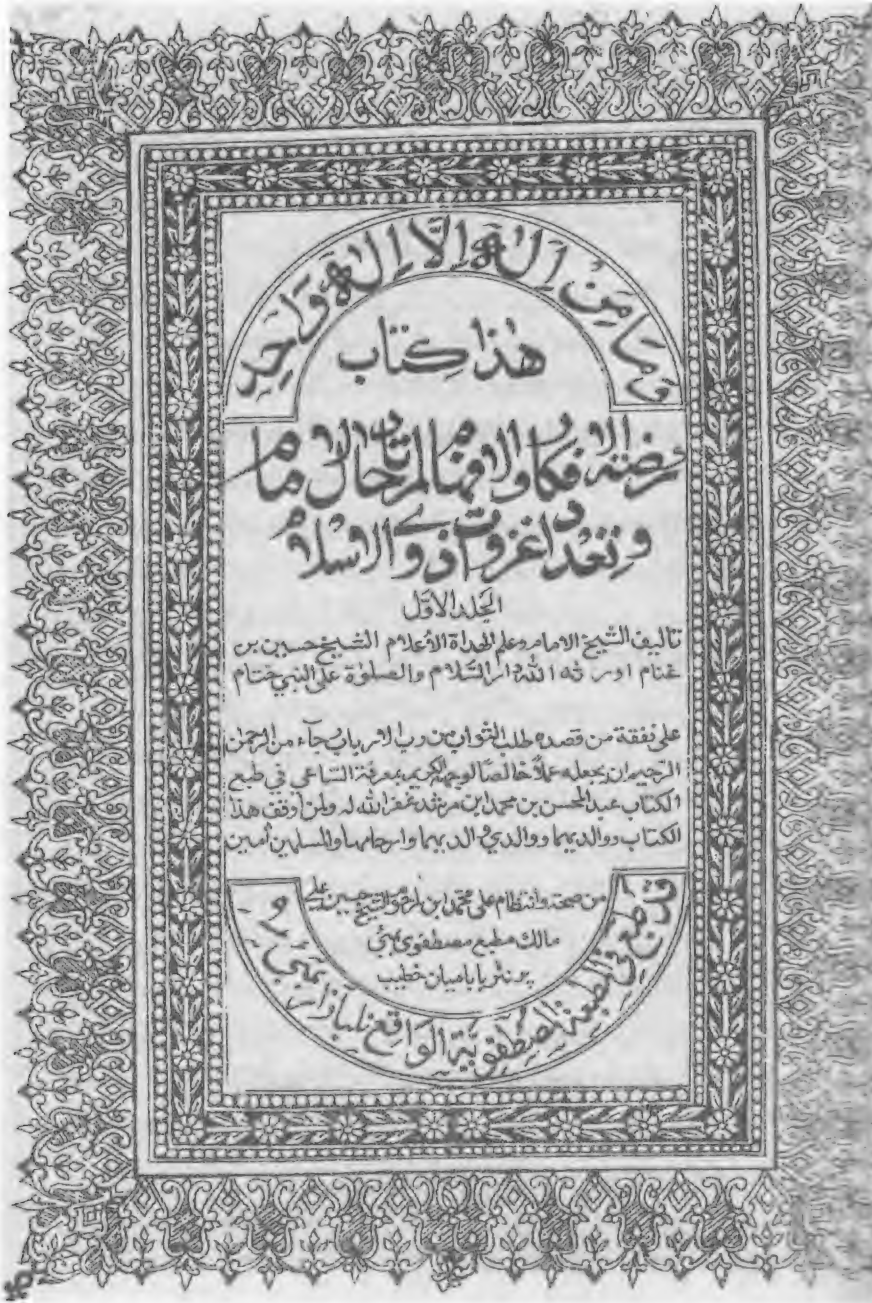 وَمَا مِنْ إِلٰهٍ إِلَّا إِلٰهٌ وَاحِدٌ
هٰذا كِتاب
روضة الافكار والافهام لمرتاد حال الامام
وتعداد غزوات ذوي الاسلام
الجلد الاوّل
تاليف الشيخ الامام وعلم الهداة الأعلام الشيخ حسين بن
غنام اورثه الله دار السّلام والصلوٰة على النبي ختام
على نفقة من قصده طلب الثواب من رب الارباب رجآء من الرحمٰن
الرحيم ان يجعله عملًا خالصًا لوجهه الكريم بمعرفة الساعى فى طبع
الكتاب عبد المحسن بن محمد ابن مرشد غفر الله له ولمن اوقف هذا
الكتاب ووالديهما ووالدي والديهما وارحامهما والمسلمين أمين
من صحة وانتظام على محمد ابن والشيخ حسين على
مالك مطبع مصطفوى بمبئ
پرنٹر بابا ميان خطيب
قد طبع فى المطبعة المصطفوية الواقع بمبئ